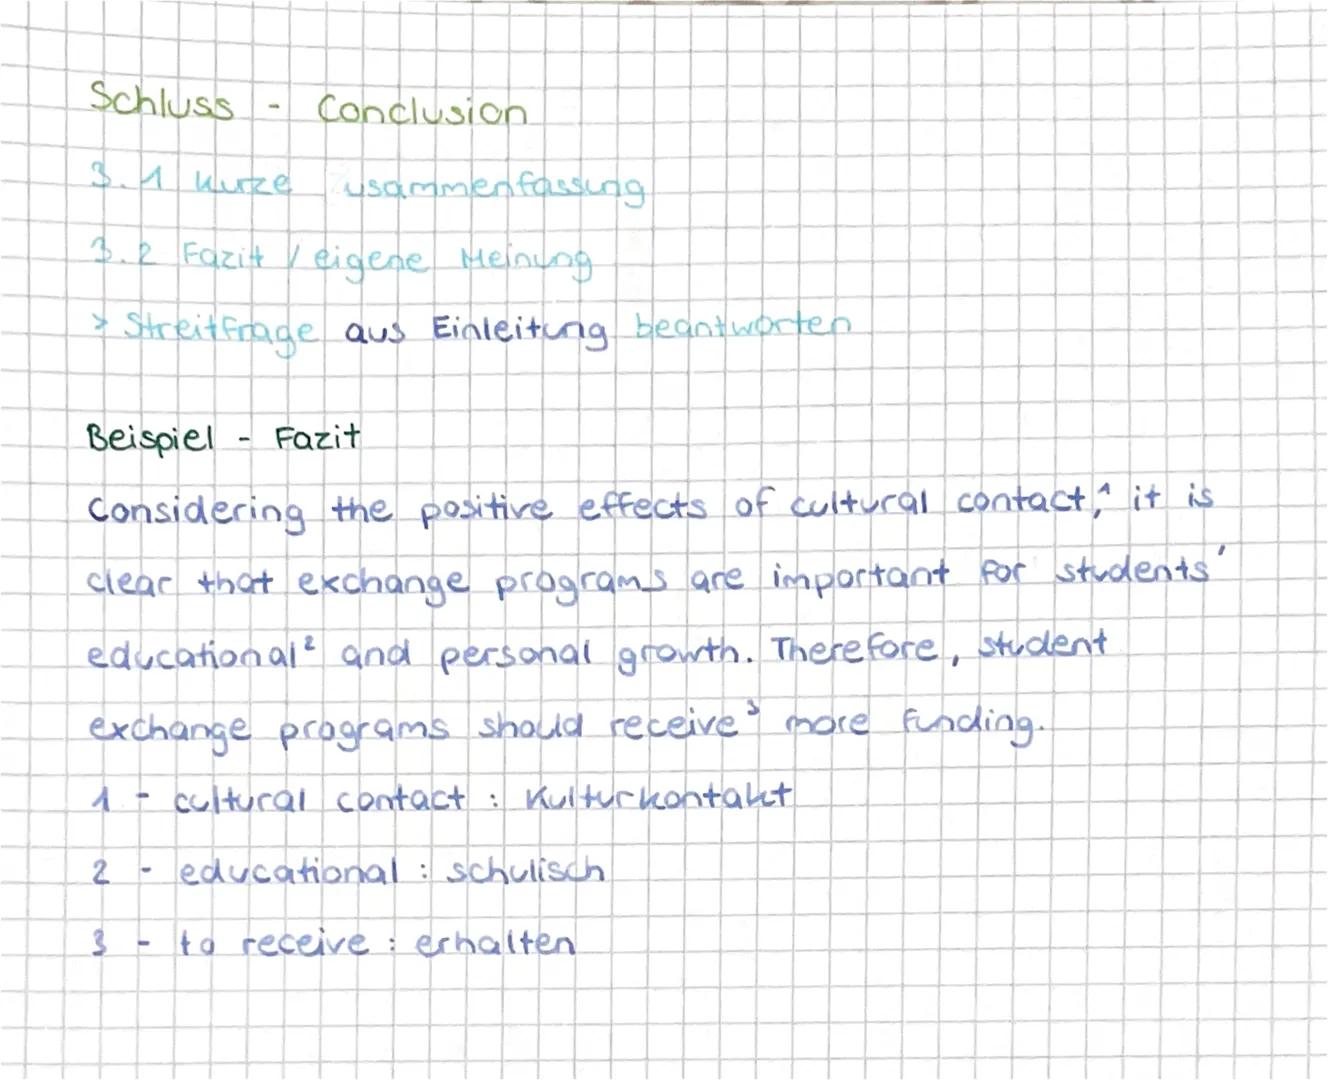 Schluss - Conclusion
3.1 Kurze Zusammenfassung
3.2 Fazit / eigene Meinung
> Streitfrage aus Einleitung beantworten
Beispiel - Fazit
Considering the positive effects of cultural contact,¹ it is
clear that exchange programs are important for students'
educational² and personal growth. Therefore, student
exchange programs should receive³ more funding.
1 - cultural contact : Kulturkontakt
2 - educational : schulisch
3 - to receive : erhalten